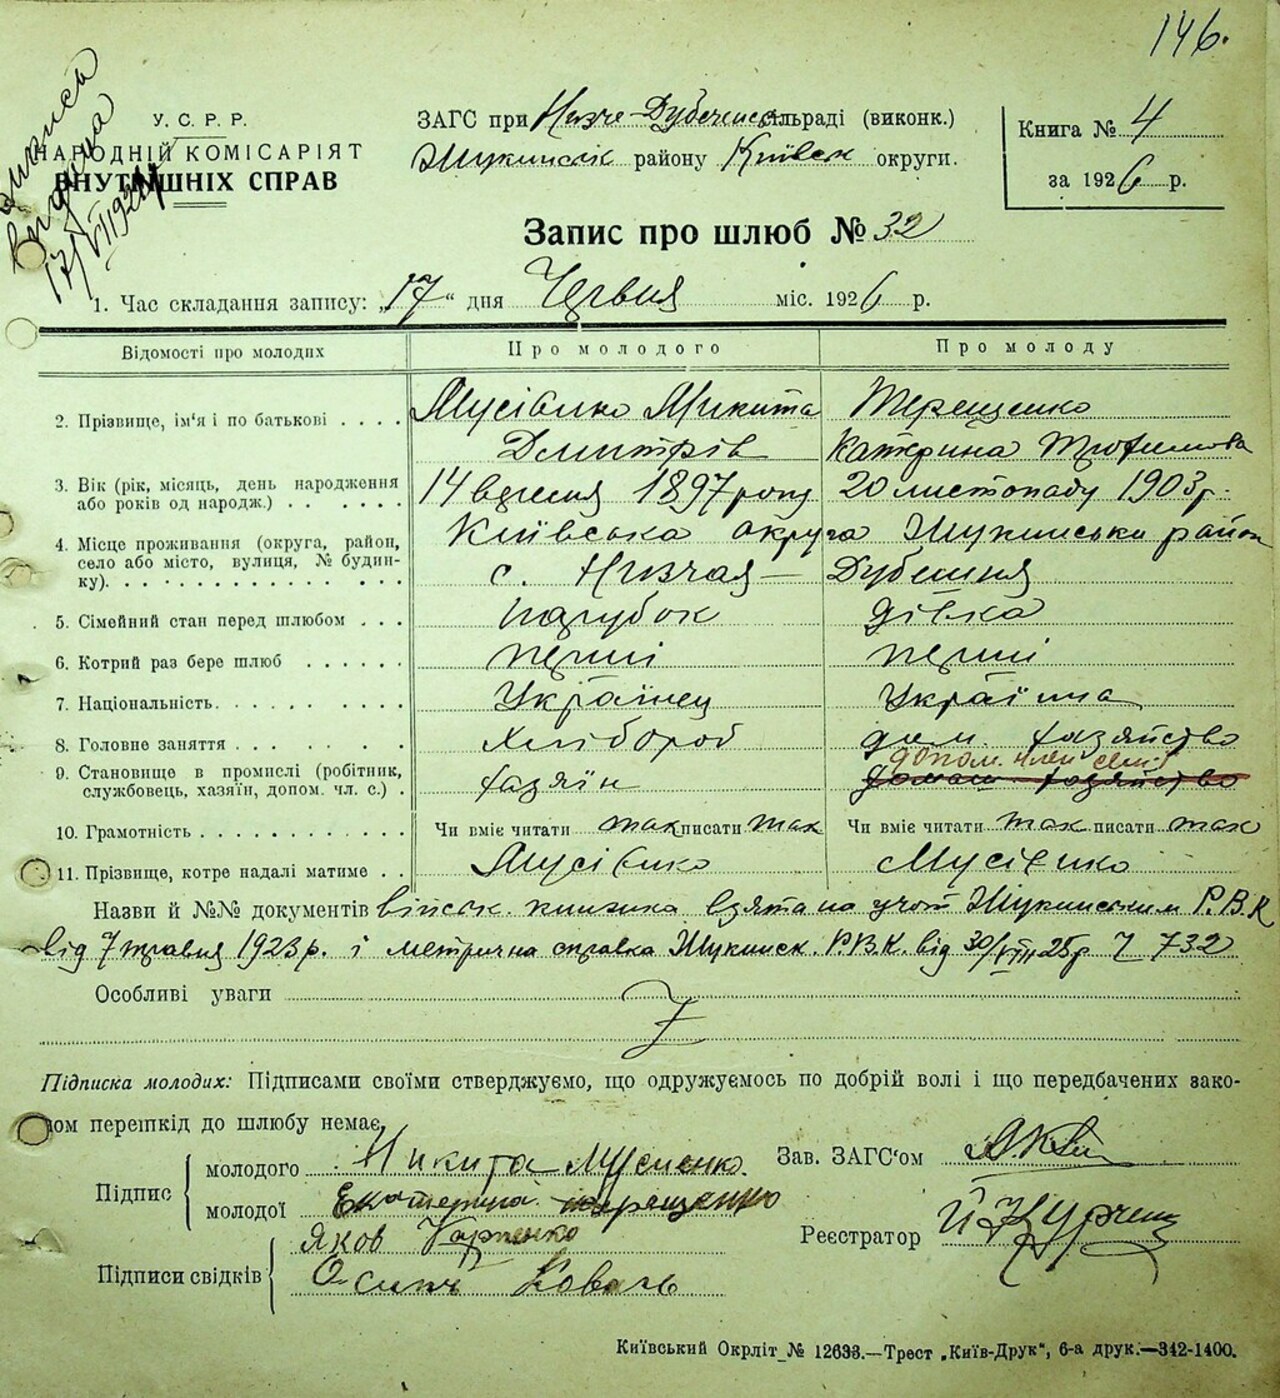 146.
Виписа
видана
17/VII 192
У. С. Р. Р.
НАРОДНІЙ КОМІСАРІЯТ
ВНУТРІШНІХ СПРАВ
ЗАГС при Низче-Дубеченс сільраді (виконк.)
Жукинськ району Київськ округи.
Книга № 4
за 1926 р.
Запис про шлюб № 32
1. Час складання запису: „17“ дня Червня міс. 1926 р.
Відомості про молодих Про молодого Про молоду
2. Прізвище, ім'я і по батькові . . . . Мусієнко Микита Терещенко
Дмитрів Катерина Трофимова
3. Вік (рік, місяць, день народження або років од народж.) . . . . . . 14 вересня 1897 року 20 листопаду 1903 р.
4. Місце проживання (округа, район, село або місто, вулиця, № будинку). Київська округа Жукинськи район
с. Низчая — Дубечня
5. Сімейний стан перед шлюбом . . . парубок дівка
6. Котрий раз бере шлюб . . . . . . перші перші
7. Національність. . . . . . . . . Українец Українка
8. Головне заняття . . . . . . . . Хлібороб дом. хазяйство
9. Становище в промислі (робітник, службовець, хазяїн, допом. чл. с.) . хазяїн допом. член сем'ї
домаш хозяйство
10. Грамотність . . . . . . . . . . Чи вміє читати так писати так Чи вміє читати так писати так
11. Прізвище, котре надалі матиме . . Мусієнко Мусієнко
Назви й №№ документів військ. книжка взята на учот Жукинським Р.В.К
від 7 травня 1923 р. і метрична справка Жукинск. Р.В.К. від 30/VIII 25 р 732
Особливі уваги
Z
Підписка молодих: Підписами своїми стверджуємо, що одружуємось по добрій волі і що передбачених зако-
ном перешкід до шлюбу немає.
Підпис молодого Никита Мусиенко.
молодої Екатерина терещенко
Зав. ЗАГС'ом
Підписи свідків Яков Карпенко
Осип Коваль
Реєстратор
Київський Окрліт № 12633.—Трест „Київ-Друк“, 6-а друк.—342-1400.